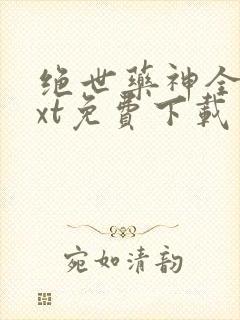 绝世药神全
xt免费下载
宛如清韵